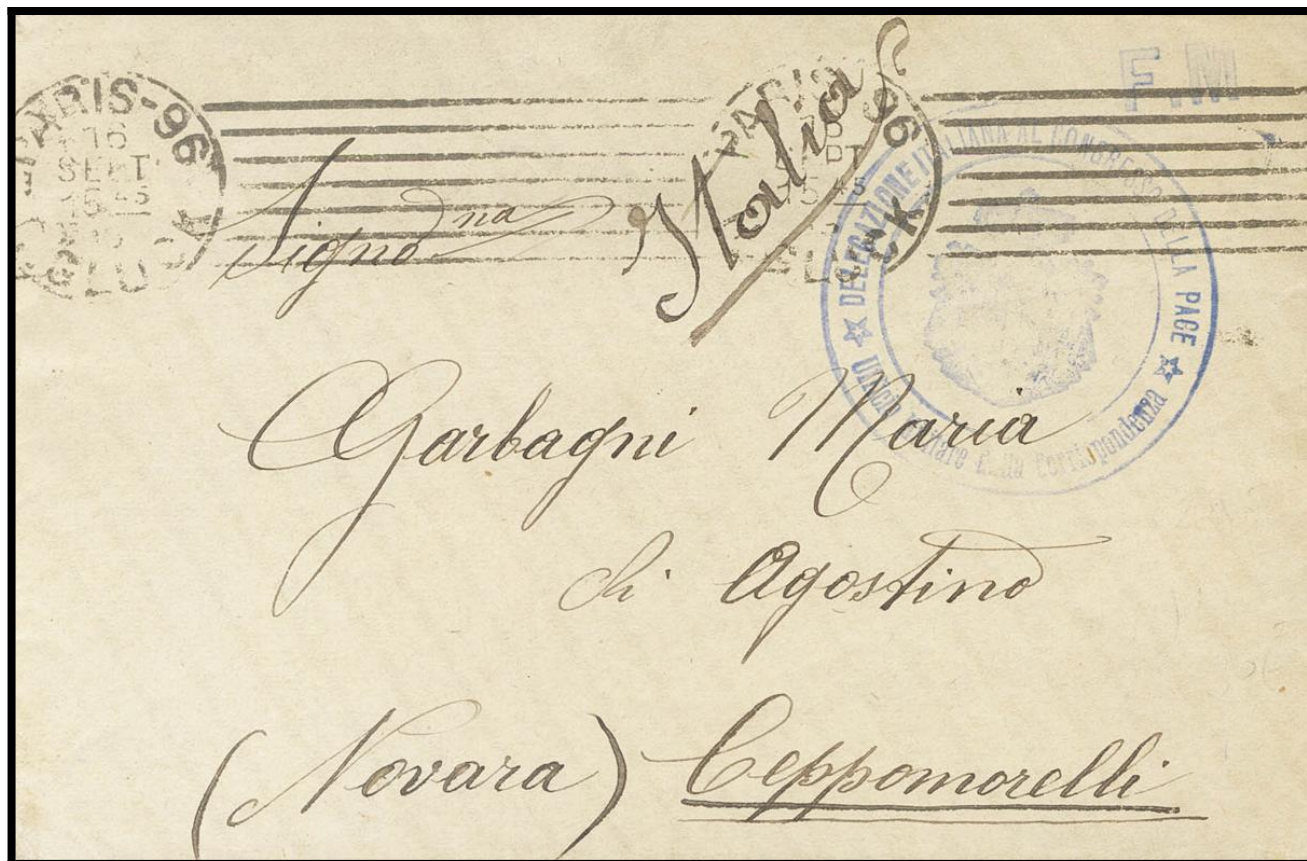 PARIS-96
16
SEPT
15 45
PARIS 96
16
SEPT
15 45
F.M
Italia
DELEGAZIONE ITALIANA AL CONGRESSO DELLA PACE
Ufficio Militare della Corrispondenza
Signo na
Garbagni Maria
di Agostino
(Novara) Ceppomorelli